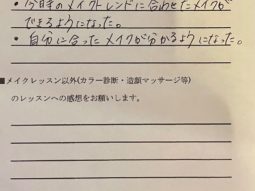 ・今時のメイクトレンドに合わせたメイクが
できるようになった。
・自分に合ったメイクが分かるようになった。
■メイクレッスン以外(カラー診断・造顔マッサージ等)
のレッスンへの感想をお願いします。